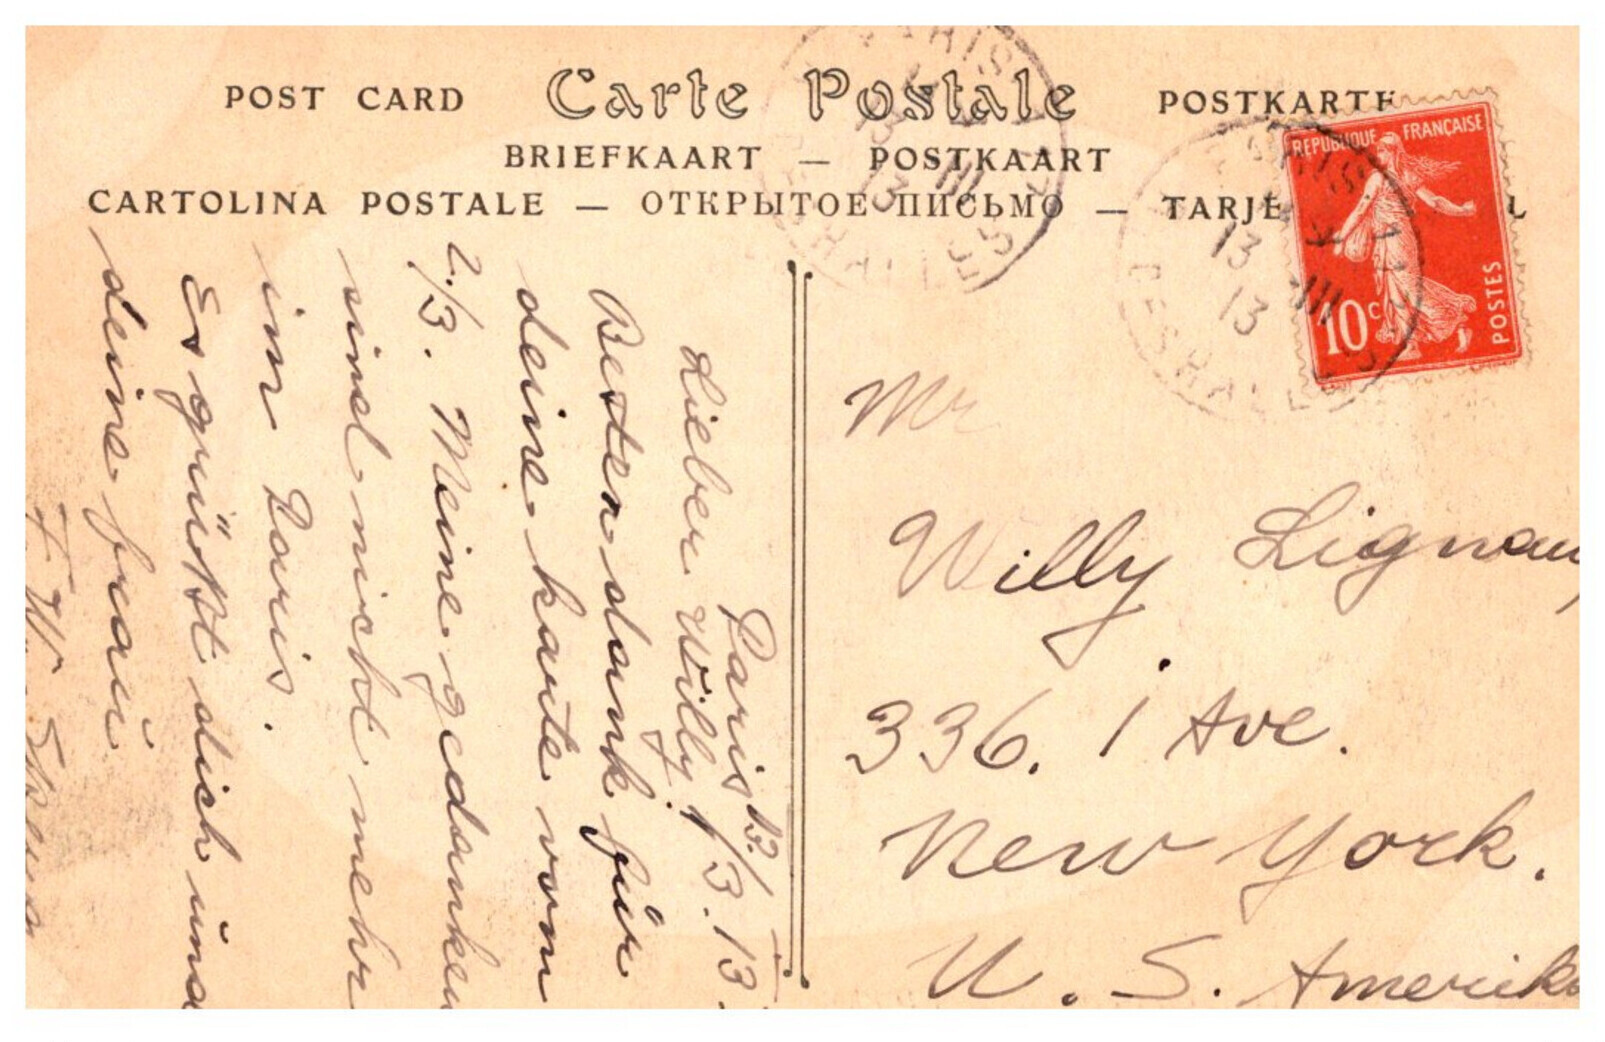 POST CARD Carte Postale POSTKARTE
BRIEFKAART — POSTKAART
CARTOLINA POSTALE — ОТКРЫТОЕ ПИСЬМО — TARJE L
REPUBLIQUE FRANÇAISE
10c
POSTES
PARIS
13
13
Paris 12./3. 13.
Lieber Willy!
Besten dank für
deine karte vom
2./3. Meine gedanken
sind nicht mehr
in Paris.
Es grüßt dich und
deine frau
Mr
Willy Lignau,
336. 1 Ave.
New York.
U. S. Amerika